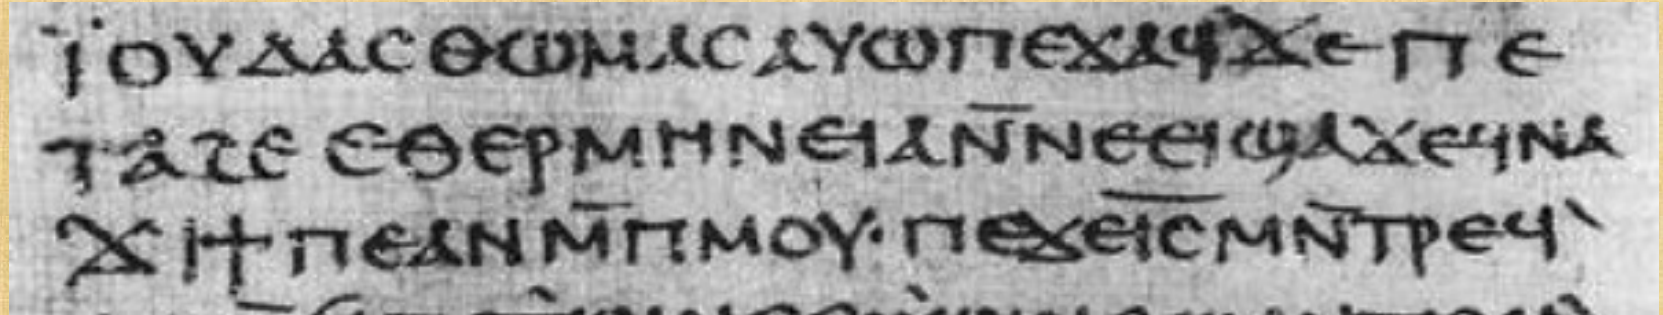 ⲓ̈ⲟⲩⲇⲁⲥ ⲑⲱⲙⲁⲥ ⲁⲩⲱ ⲡⲉϫⲁϥ ϫⲉ ⲡⲉ
ⲧⲁϩⲉ ⲉⲑⲉⲣⲙⲏⲛⲉⲓⲁ ⲛ̄ⲛⲉⲉⲓϣⲁϫⲉ ϥⲛⲁ
ϫⲓ ϯⲡⲉ ⲁⲛ ⲙ̄ⲡⲙⲟⲩ· ⲡⲉϫⲉ ⲓ̅ⲥ̅ ⲙⲛ̄ⲧⲣⲉϥ`